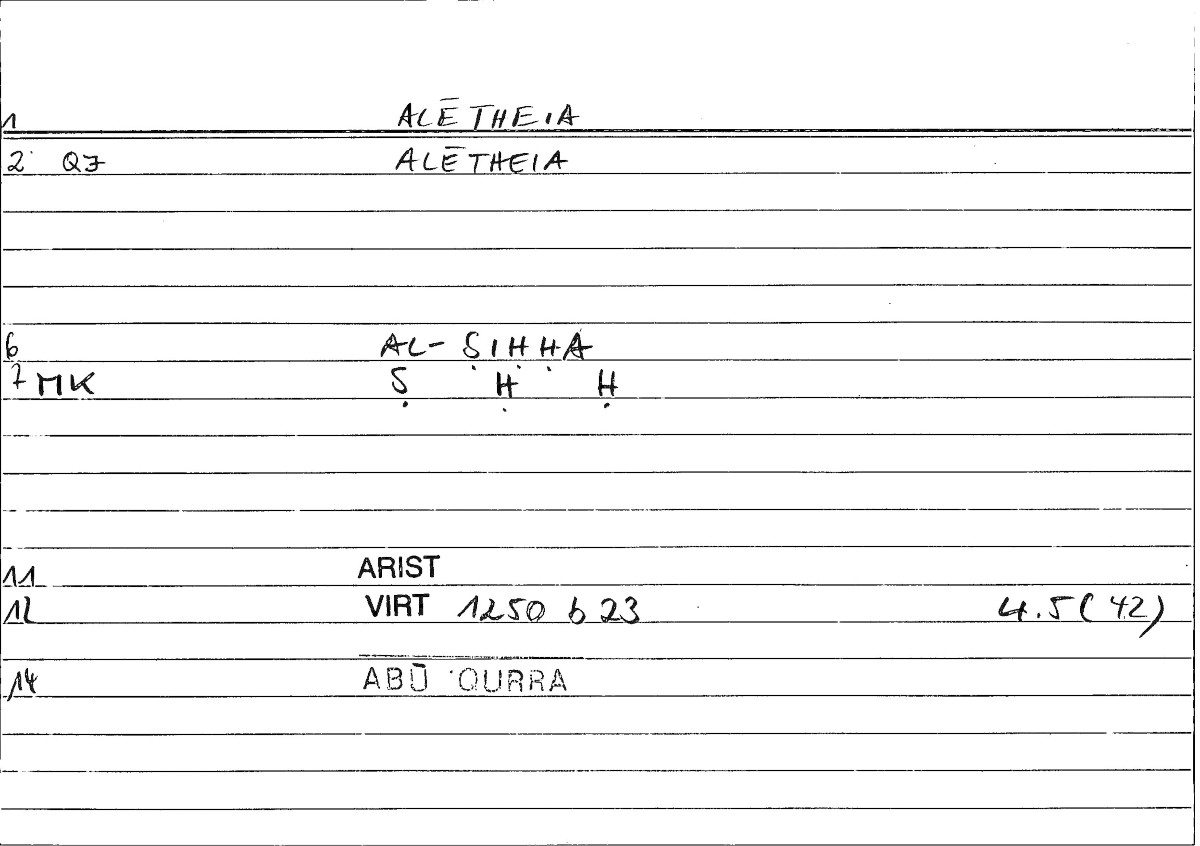 1 ALĒTHEIA
2 QJ ALĒTHEIA
6 AL-ṢIḤḤA
7 MK Ṣ Ḥ Ḥ
11 ARIST
12 VIRT 1250 b 23 4.5 (42)
14 ABŪ QURRA